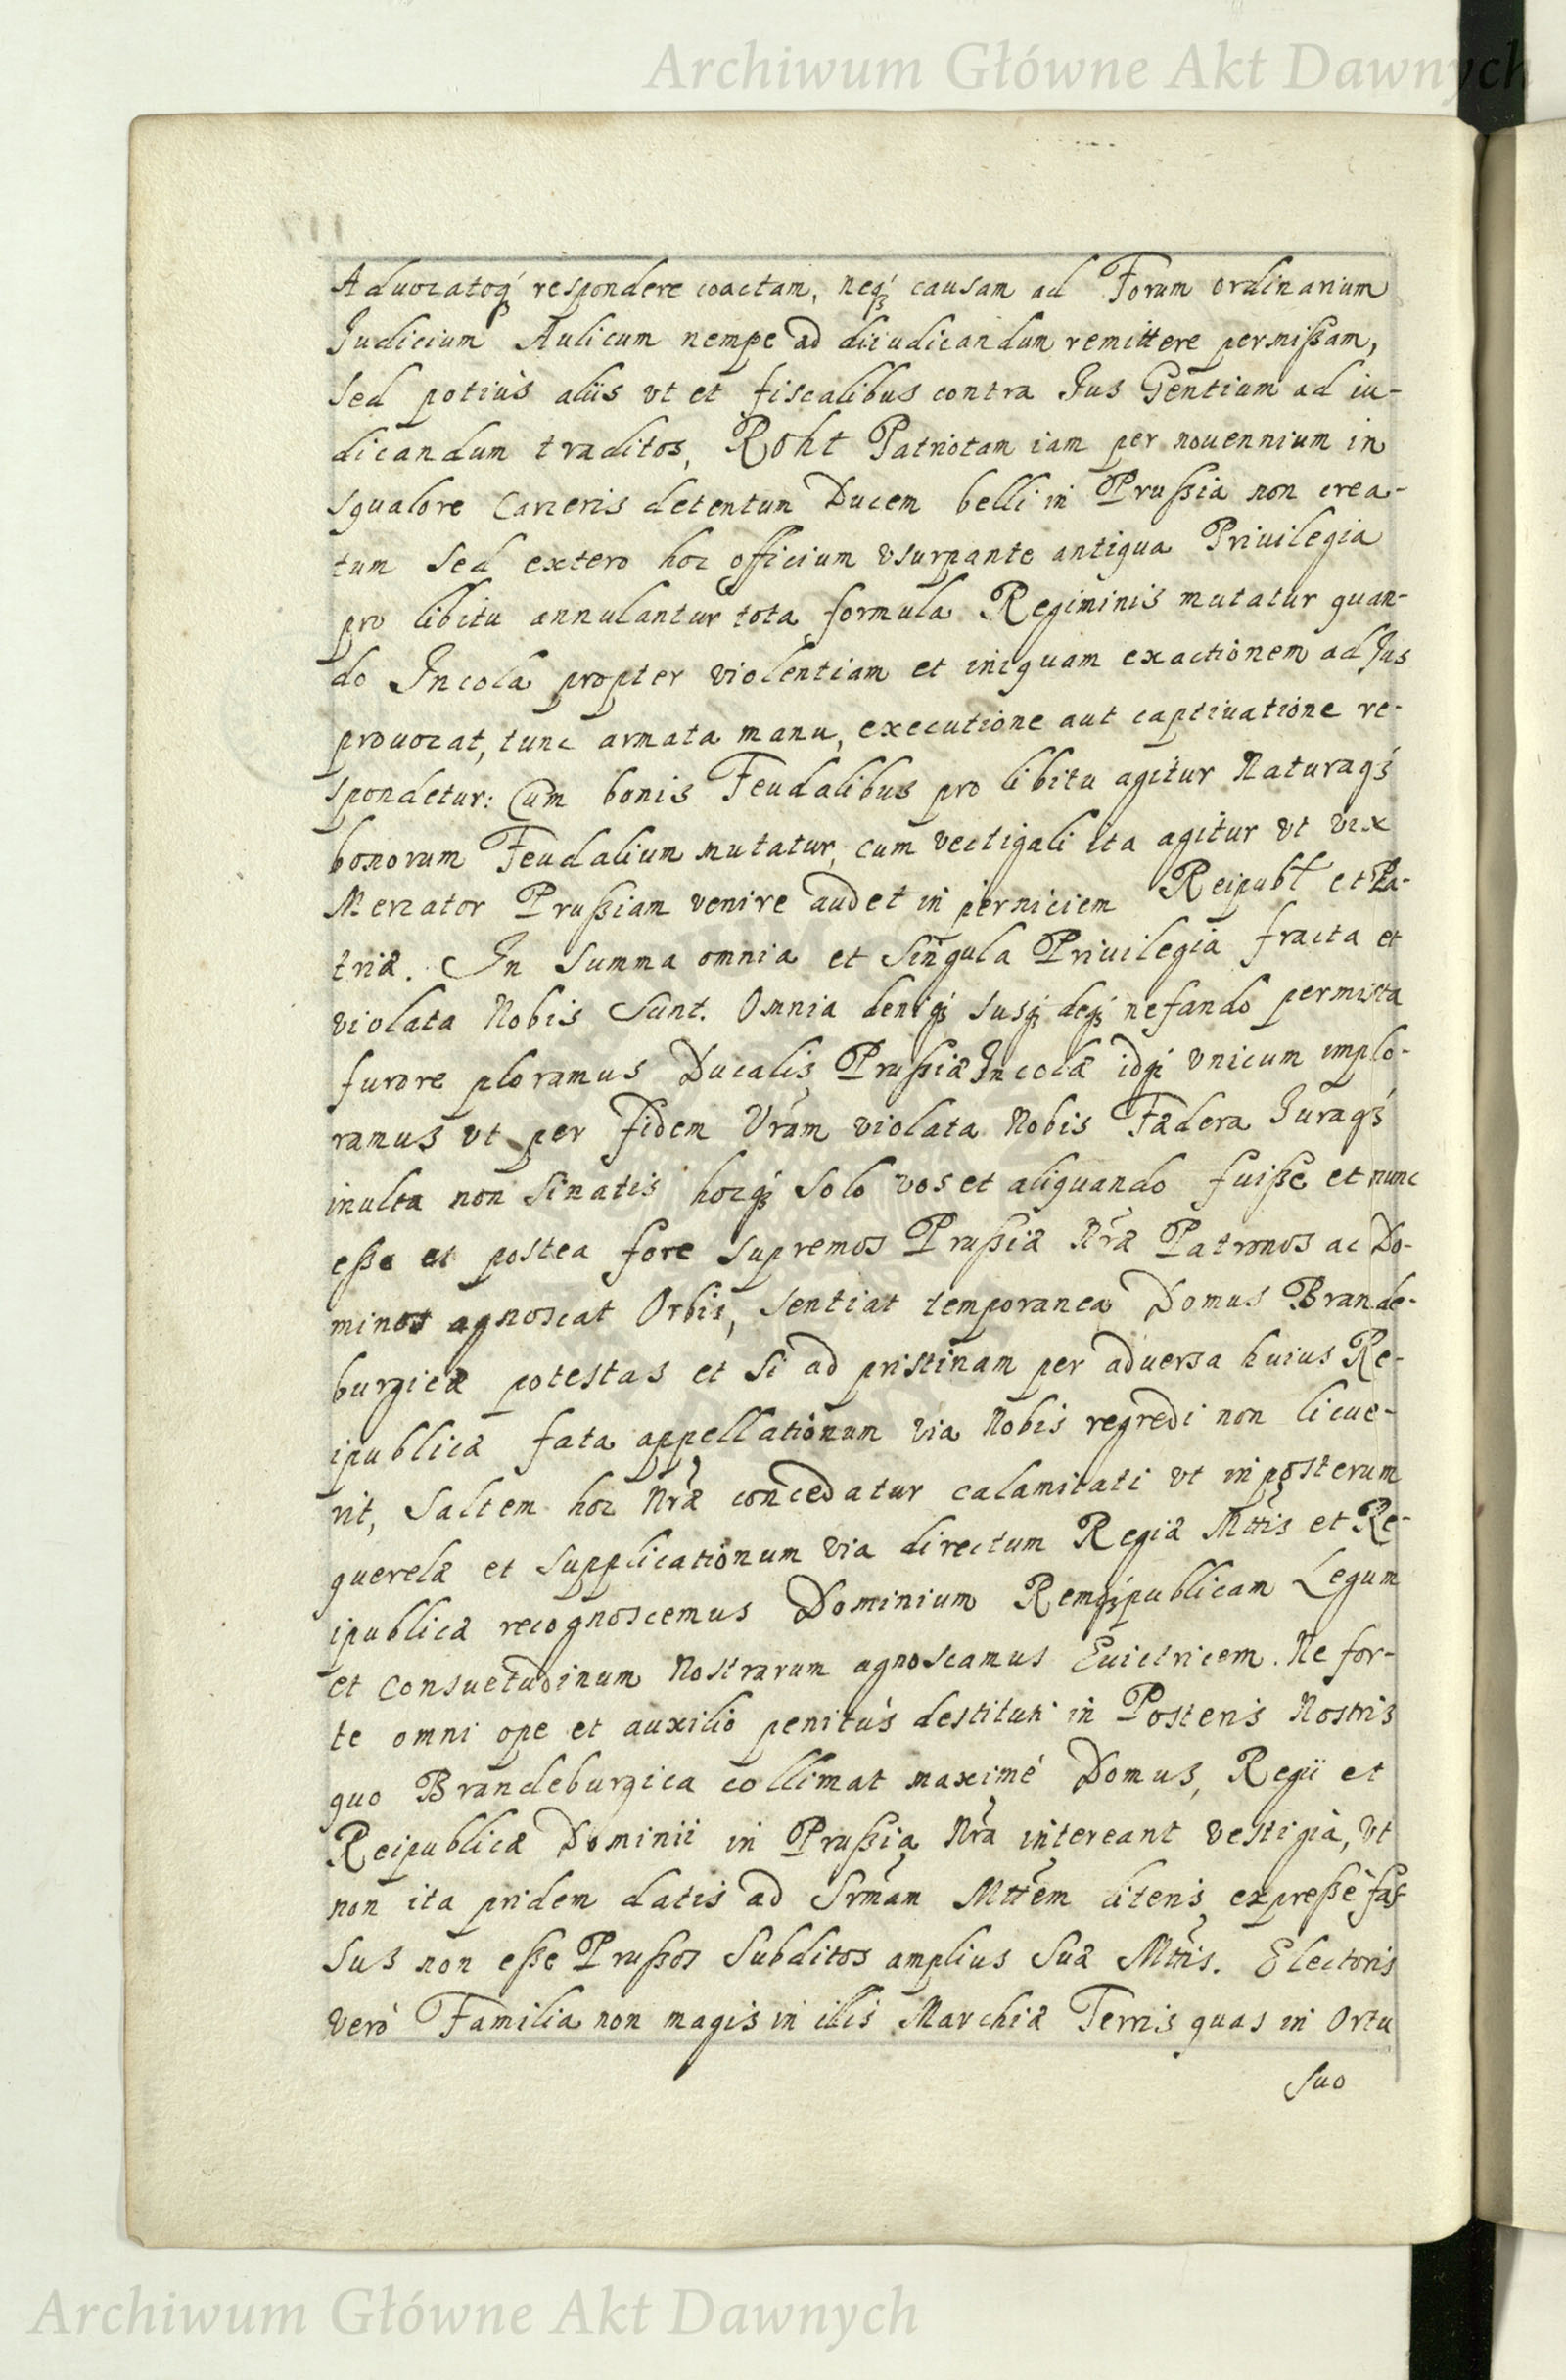 Archiwum Główne Akt Dawnych
Aduocatoq́ꝫ respondere coactam, neq́ꝫ causam ad Forum ordinarium
Judicium Aulicum nempe ad diiudicandum remittere permißam,
sed potiùs aliis vt et fiscalibus contra Jus Gentium ad iu-
dicandum traditos, Roht Patriotam iam per nouennium in
squalore Carceris detentum Ducem belli in Prußia non crea-
tum sed extero hoc officium vsurpante antiqua Priuilegia
pro libitu annulantur tota formula Regiminis mutatur quan-
do Incola propter violentiam et iniquam exactionem ad Jus
prouocat, tunc armata manu, executione aut captiuatione re-
spondetur: Cum bonis Feudalibus pro libitu agitur Naturaq́ꝫ
bonorum Feudalium mutatur, cum vectigali ita agitur vt vix
Mercator Prußiam venire audet in perniciem Reipubl̃ et Pa-
triæ. In summa omnia et singula Priuilegia fracta et
violata Nobis sunt. Omnia deniq́ꝫ susq́ꝫ deq́ꝫ nefando permista
furore ploramus Ducalis Prußiæ Incolæ idq́ꝫ vnicum implo-
ramus vt per fidem Vr̃am violata Nobis Fædera Juraq́ꝫ
inulta non sinatis hocq́ꝫ solo vos et aliquando fuiße et nunc
eße et postea fore supremos Prußiæ Nr̃æ Patronos ac Do-
minos agnoscat Orbis, sentiat temporanea Domus Brande-
burgicæ potestas et si ad pristinam per aduersa huius Re-
ipublicæ fata appellationum via Nobis regredi non licue-
rit, saltem hoc Nr̃æ concedatur calamitati vt in posterum
querelæ et supplicationum via directum Regiæ Mttis et Re-
ipublicæ recognoscemus Dominium Remq́ꝫpublicam Legum
et Consuetudinum Nostrarum agnoscamus Euictricem. Ne for-
te omni ope et auxilio penitùs destituti in Posteris Nostris
quo Brandeburgica collimat maximé Domus, Regii et
Reipublicæ Dominii in Prußia Nr̃a intereant vestigia, vt
non ita pridem datis ad Srm̃am Mttẽm literis expreßè faſ
sus non eße Prußos subditos amplius suæ Mttis. Electoris
verò Familia non magis in illis Marchiæ Terris quas in Ortu
suo
Archiwum Główne Akt Dawnych